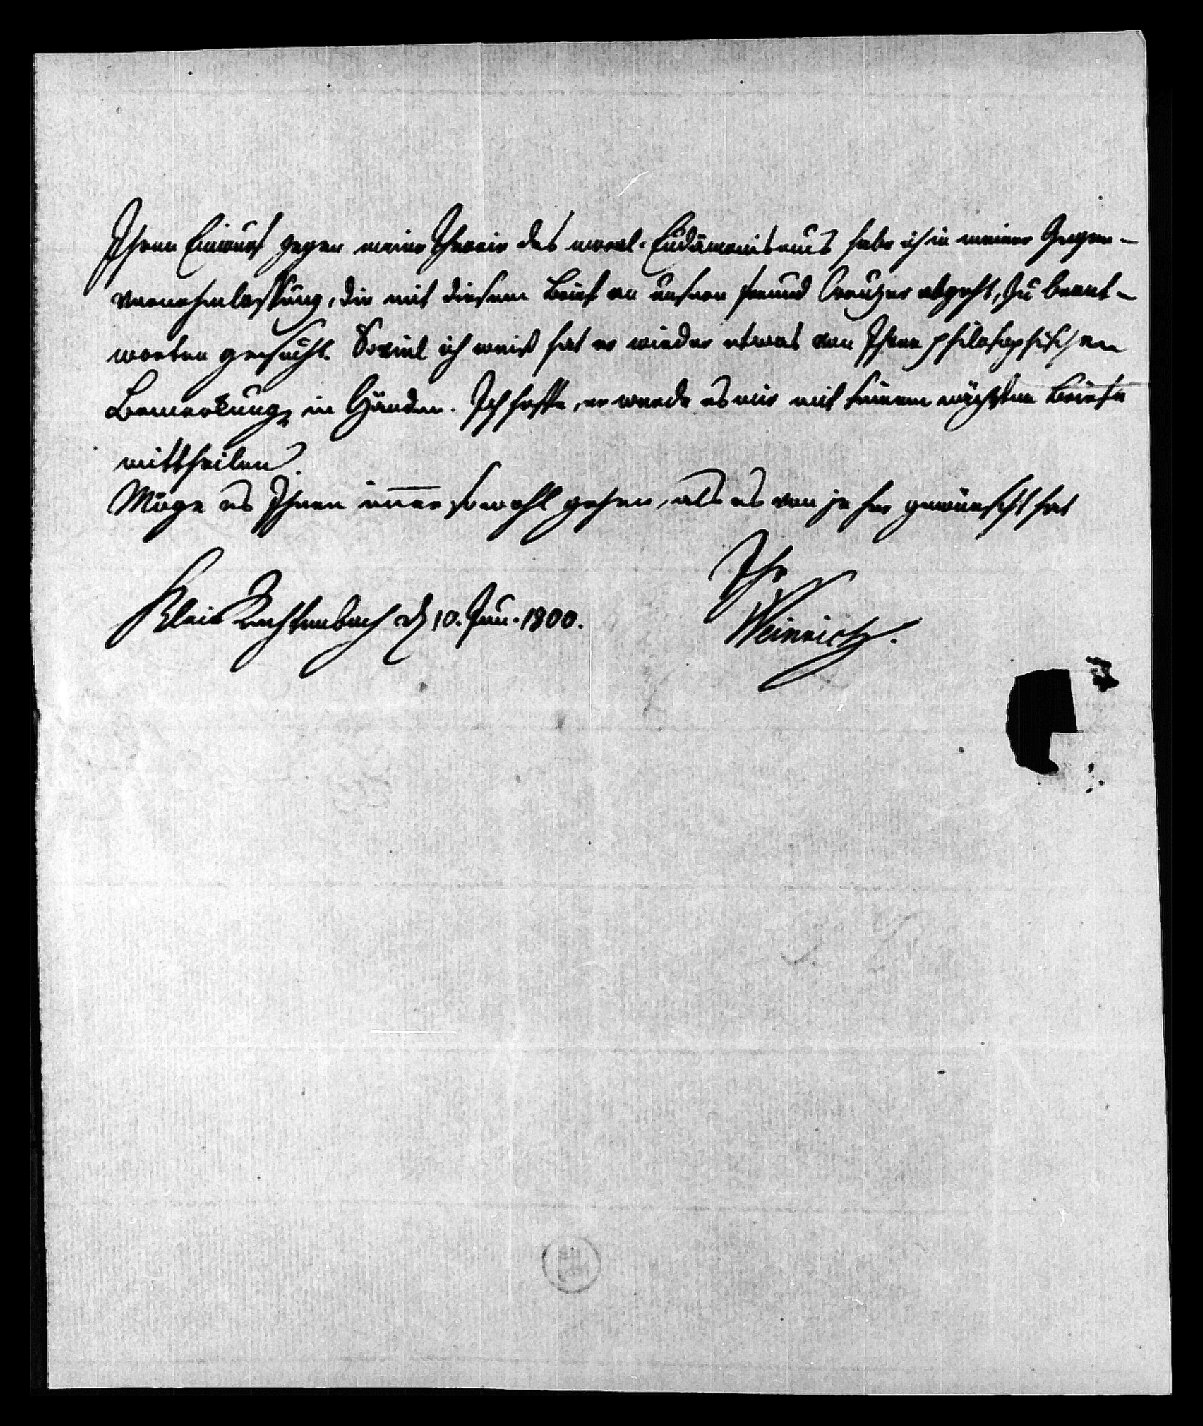 Ihren Einwurf gegen meine Theorie des moral. Eudämonismus habe ich in meiner Gegen-
vernehmlassung, die mit diesem Brief an unsern Freund Creuzer abgeht, zu beant-
worten gesucht. Soviel ich weiß hat er wieder etwas von Ihren philosophischen
Bemerkung in Händen. Ich hoffe, er werde es mir mit seinem nächsten Briefe
mittheilen.
Möge es Ihnen im̅er so wohl gehen, als es von je her gewünscht hat
Ihr
Klein Rechtenbach d 10. Jun. 1800.
Weinrich.